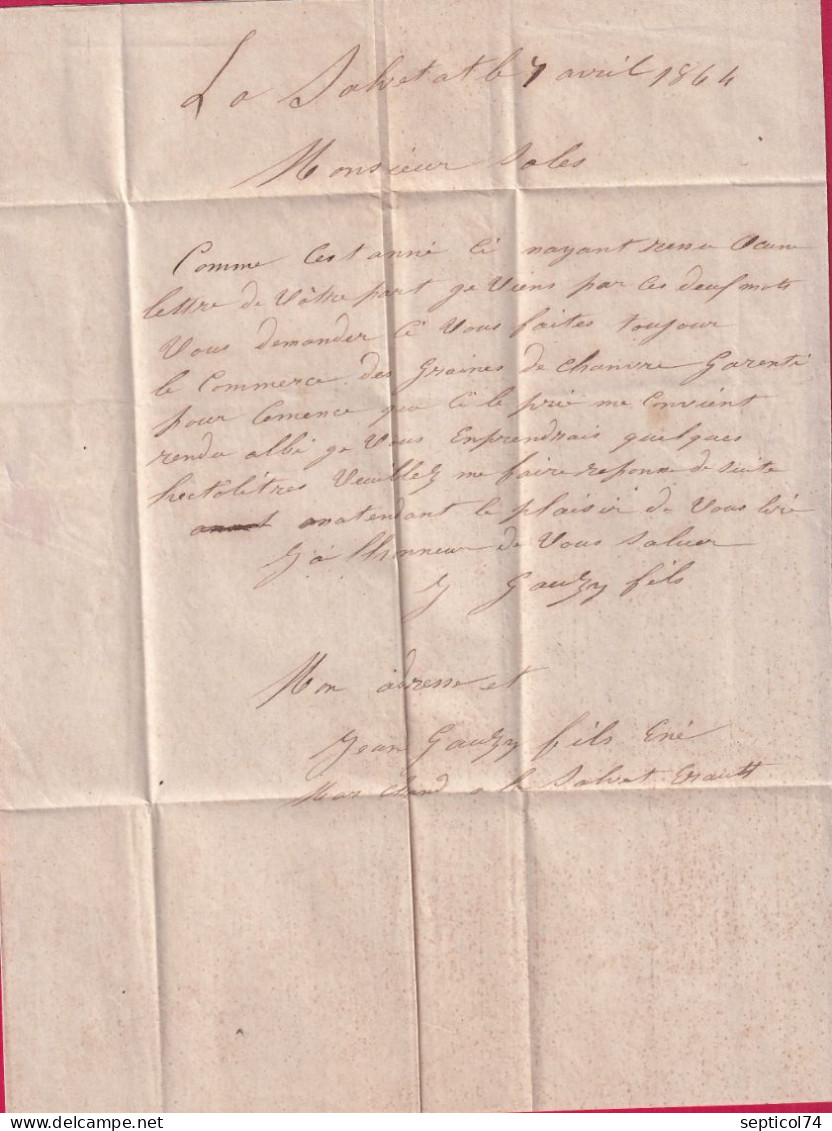 La Salvetat le 7 avril 1864
Monsieur Sales
Comme Cest anné Ci nayant resu Ocune
lettre de Vôtre part ge Viens par Ces deux mots
Vous demander Ci Vous faites toujour
le Commerce des Graines de Chanvre Garenti
pour Cemence que Ci le prié me Convient
rendu albi ge Vous Enprendrais quelques
hectolitres Veuillez me faire reponse de suite
anatendant le plaisir de Vous lire
J'ai lhonneur de Vous Saluer
J Gauzy fils
Mon adresse et
Jean Gauzy fils Ené
Marchand a la Salvetat Erault
septicol74